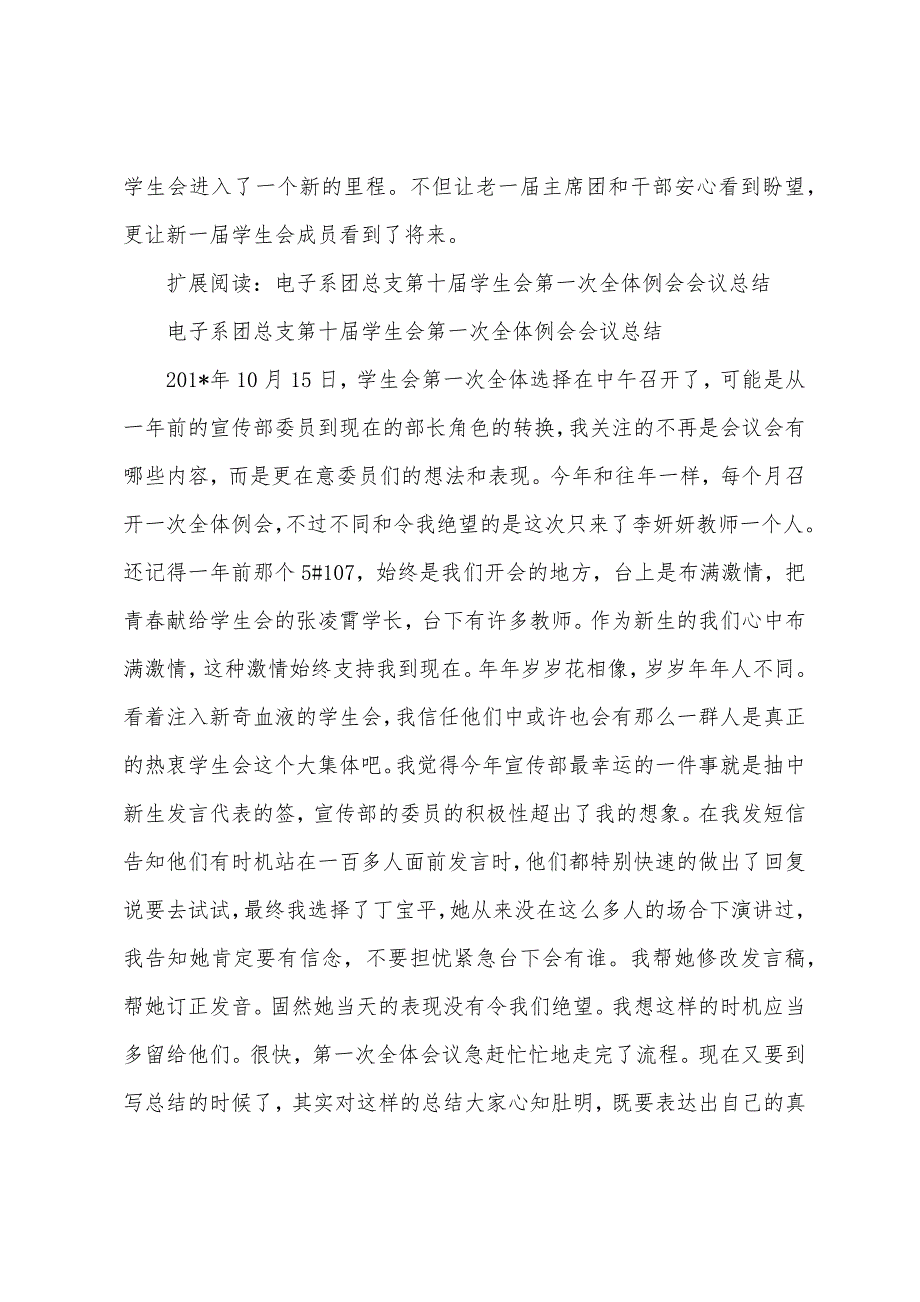 学生会进入了一个新的里程。不但让老一届主席团和干部安心看到盼望，
更让新一届学生会成员看到了将来。
扩展阅读：电子系团总支第十届学生会第一次全体例会会议总结
电子系团总支第十届学生会第一次全体例会会议总结
201*年 10 月 15 日，学生会第一次全体选择在中午召开了，可能是从
一年前的宣传部委员到现在的部长角色的转换，我关注的不再是会议会有
哪些内容，而是更在意委员们的想法和表现。今年和往年一样，每个月召
开一次全体例会，不过不同和令我绝望的是这次只来了李妍妍教师一个人。
还记得一年前那个 5#107，始终是我们开会的地方，台上是布满激情，把
青春献给学生会的张凌霄学长，台下有许多教师。作为新生的我们心中布
满激情，这种激情始终支持我到现在。年年岁岁花相像，岁岁年年人不同。
看着注入新奇血液的学生会，我信任他们中或许也会有那么一群人是真正
的热衷学生会这个大集体吧。我觉得今年宣传部最幸运的一件事就是抽中
新生发言代表的签，宣传部的委员的积极性超出了我的想象。在我发短信
告知他们有时机站在一百多人面前发言时，他们都特别快速的做出了回复
说要去试试，最终我选择了丁宝平，她从来没在这么多人的场合下演讲过，
我告知她肯定要有信念，不要担忧紧急台下会有谁。我帮她修改发言稿，
帮她订正发音。固然她当天的表现没有令我们绝望。我想这样的时机应当
多留给他们。很快，第一次全体会议急赶忙忙地走完了流程。现在又要到
写总结的时候了，其实对这样的总结大家心知肚明，既要表达出自己的真